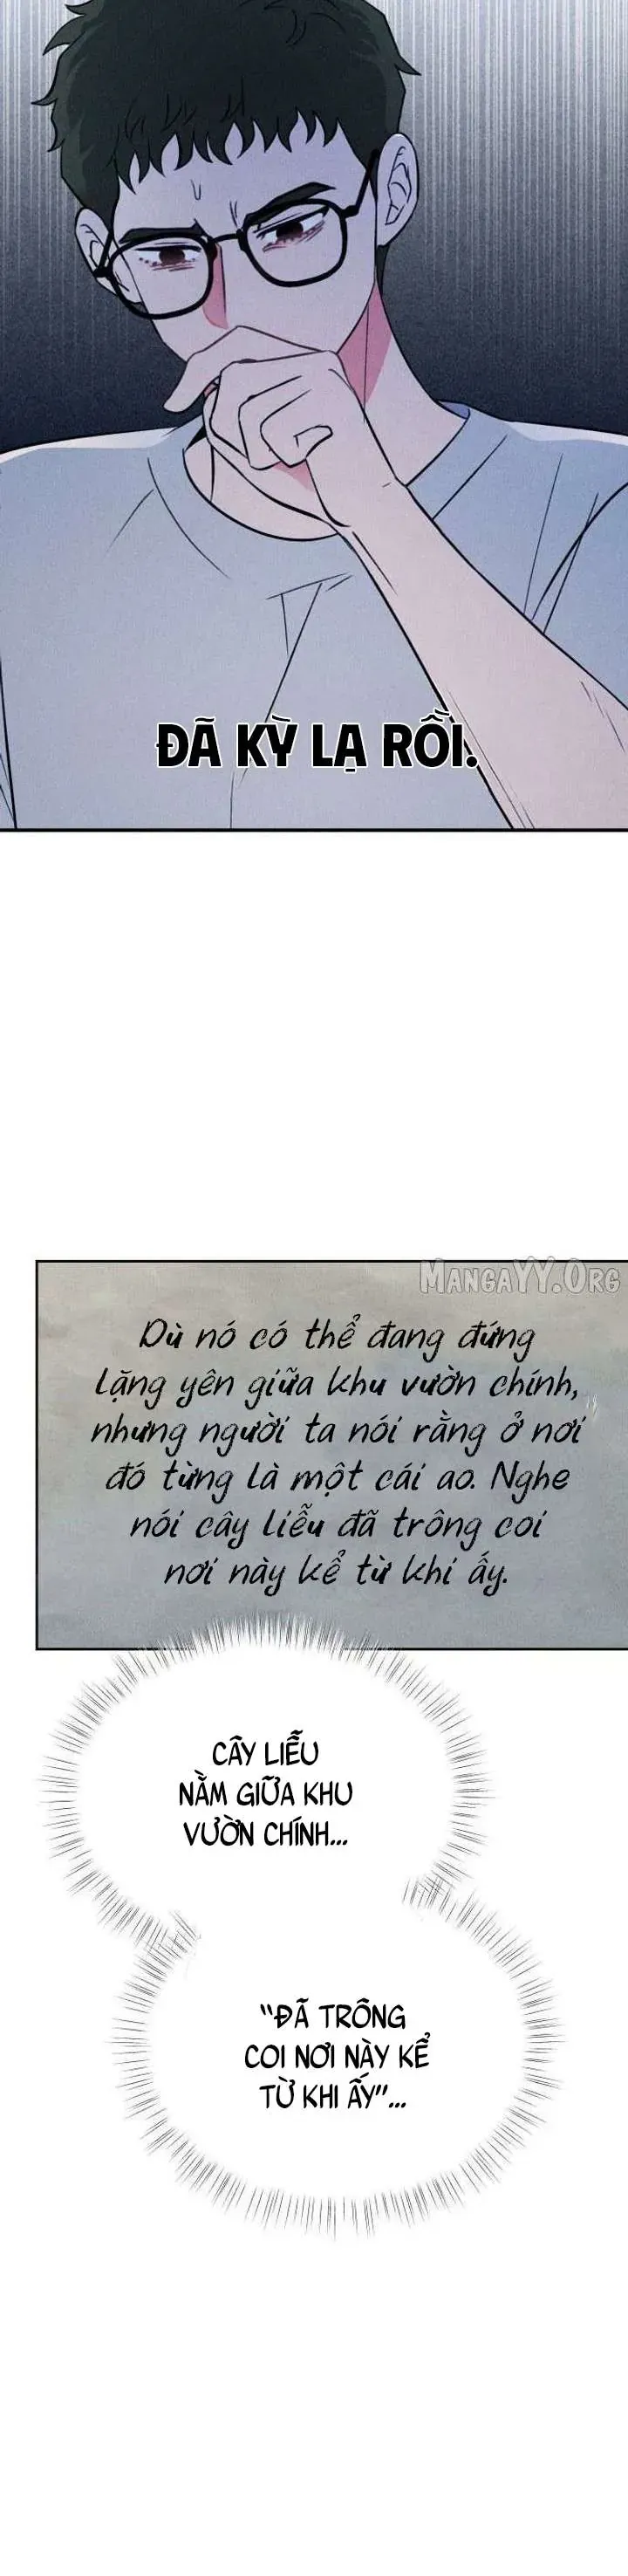 ĐÃ KỲ LẠ RỒI.
MANGAYY.ORG
Dù nó có thể đang đứng
lặng yên giữa khu vườn chính,
nhưng người ta nói rằng ở nơi
đó từng là một cái ao. Nghe
nói cây liễu đã trông coi
nơi này kể từ khi ấy.
CÂY LIỄU
NẰM GIỮA KHU
VƯỜN CHÍNH...
"ĐÃ TRÔNG
COI NƠI NÀY KỂ
TỪ KHI ẤY"...